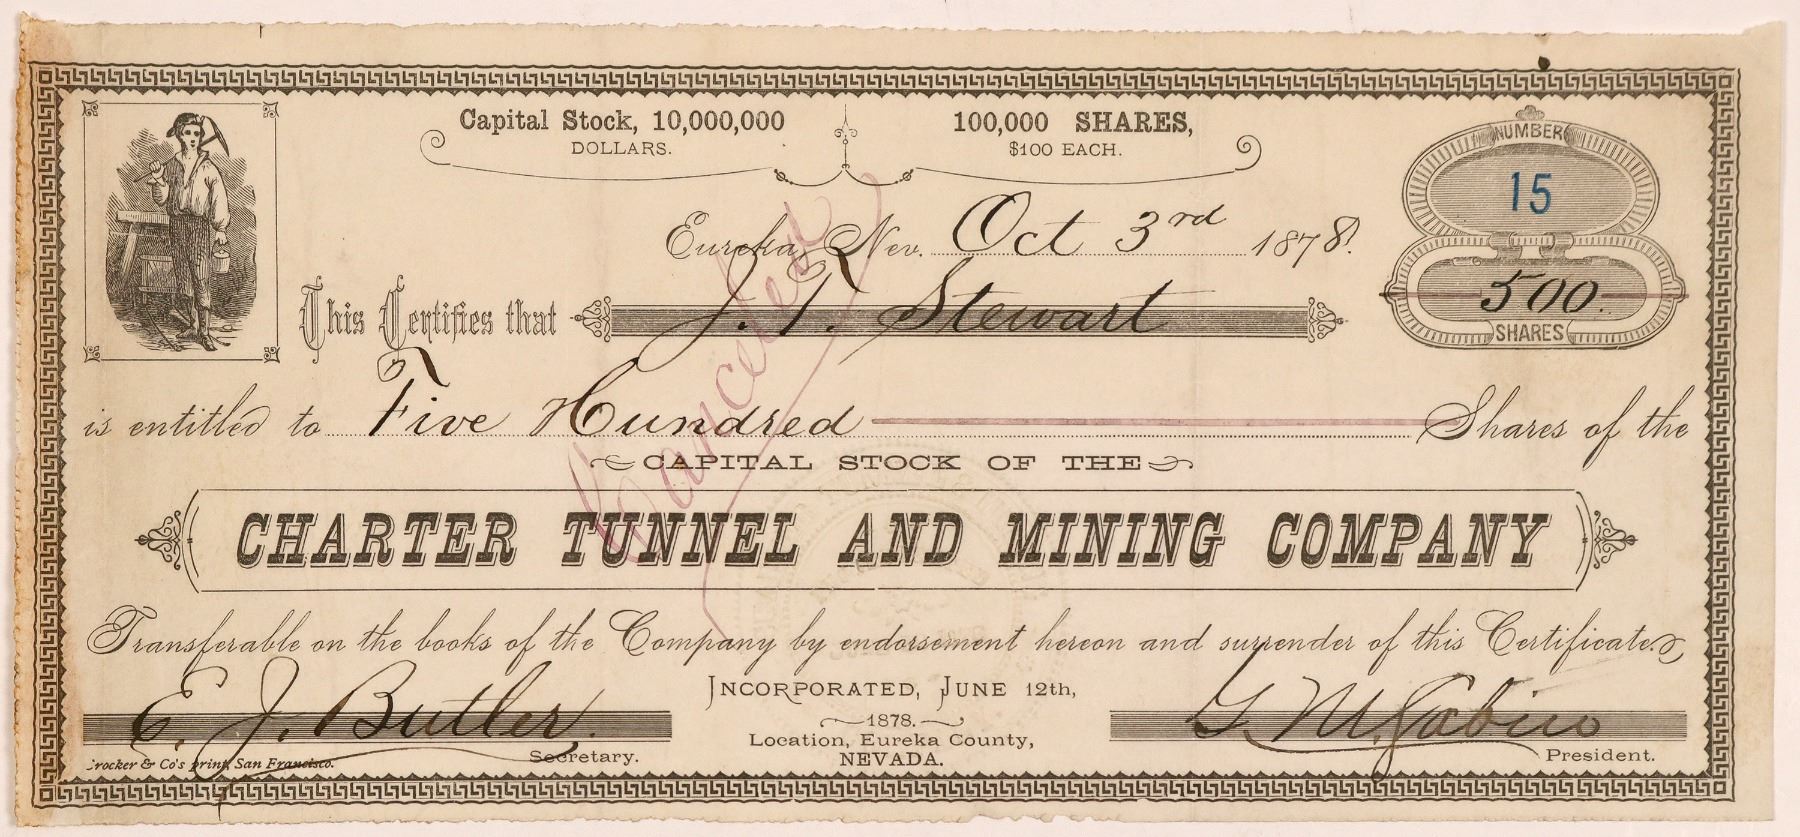 Capital Stock, 10,000,000
DOLLARS.
100,000 SHARES,
$100 EACH.
NUMBER
15
Eureka, Nev. Oct 3rd 1878.
500
SHARES
This Certifies that J. T. Stewart
is entitled to Five Hundred Shares of the
Canceled
CAPITAL STOCK OF THE
CHARTER TUNNEL AND MINING COMPANY
Transferable on the books of the Company by endorsement hereon and surrender of this Certificate.
E. J. Butler.
Secretary.
INCORPORATED, JUNE 12th,
1878.
Location, Eureka County,
NEVADA.
G. M. Sabin
President.
rocker & Co's print, San Francisco.